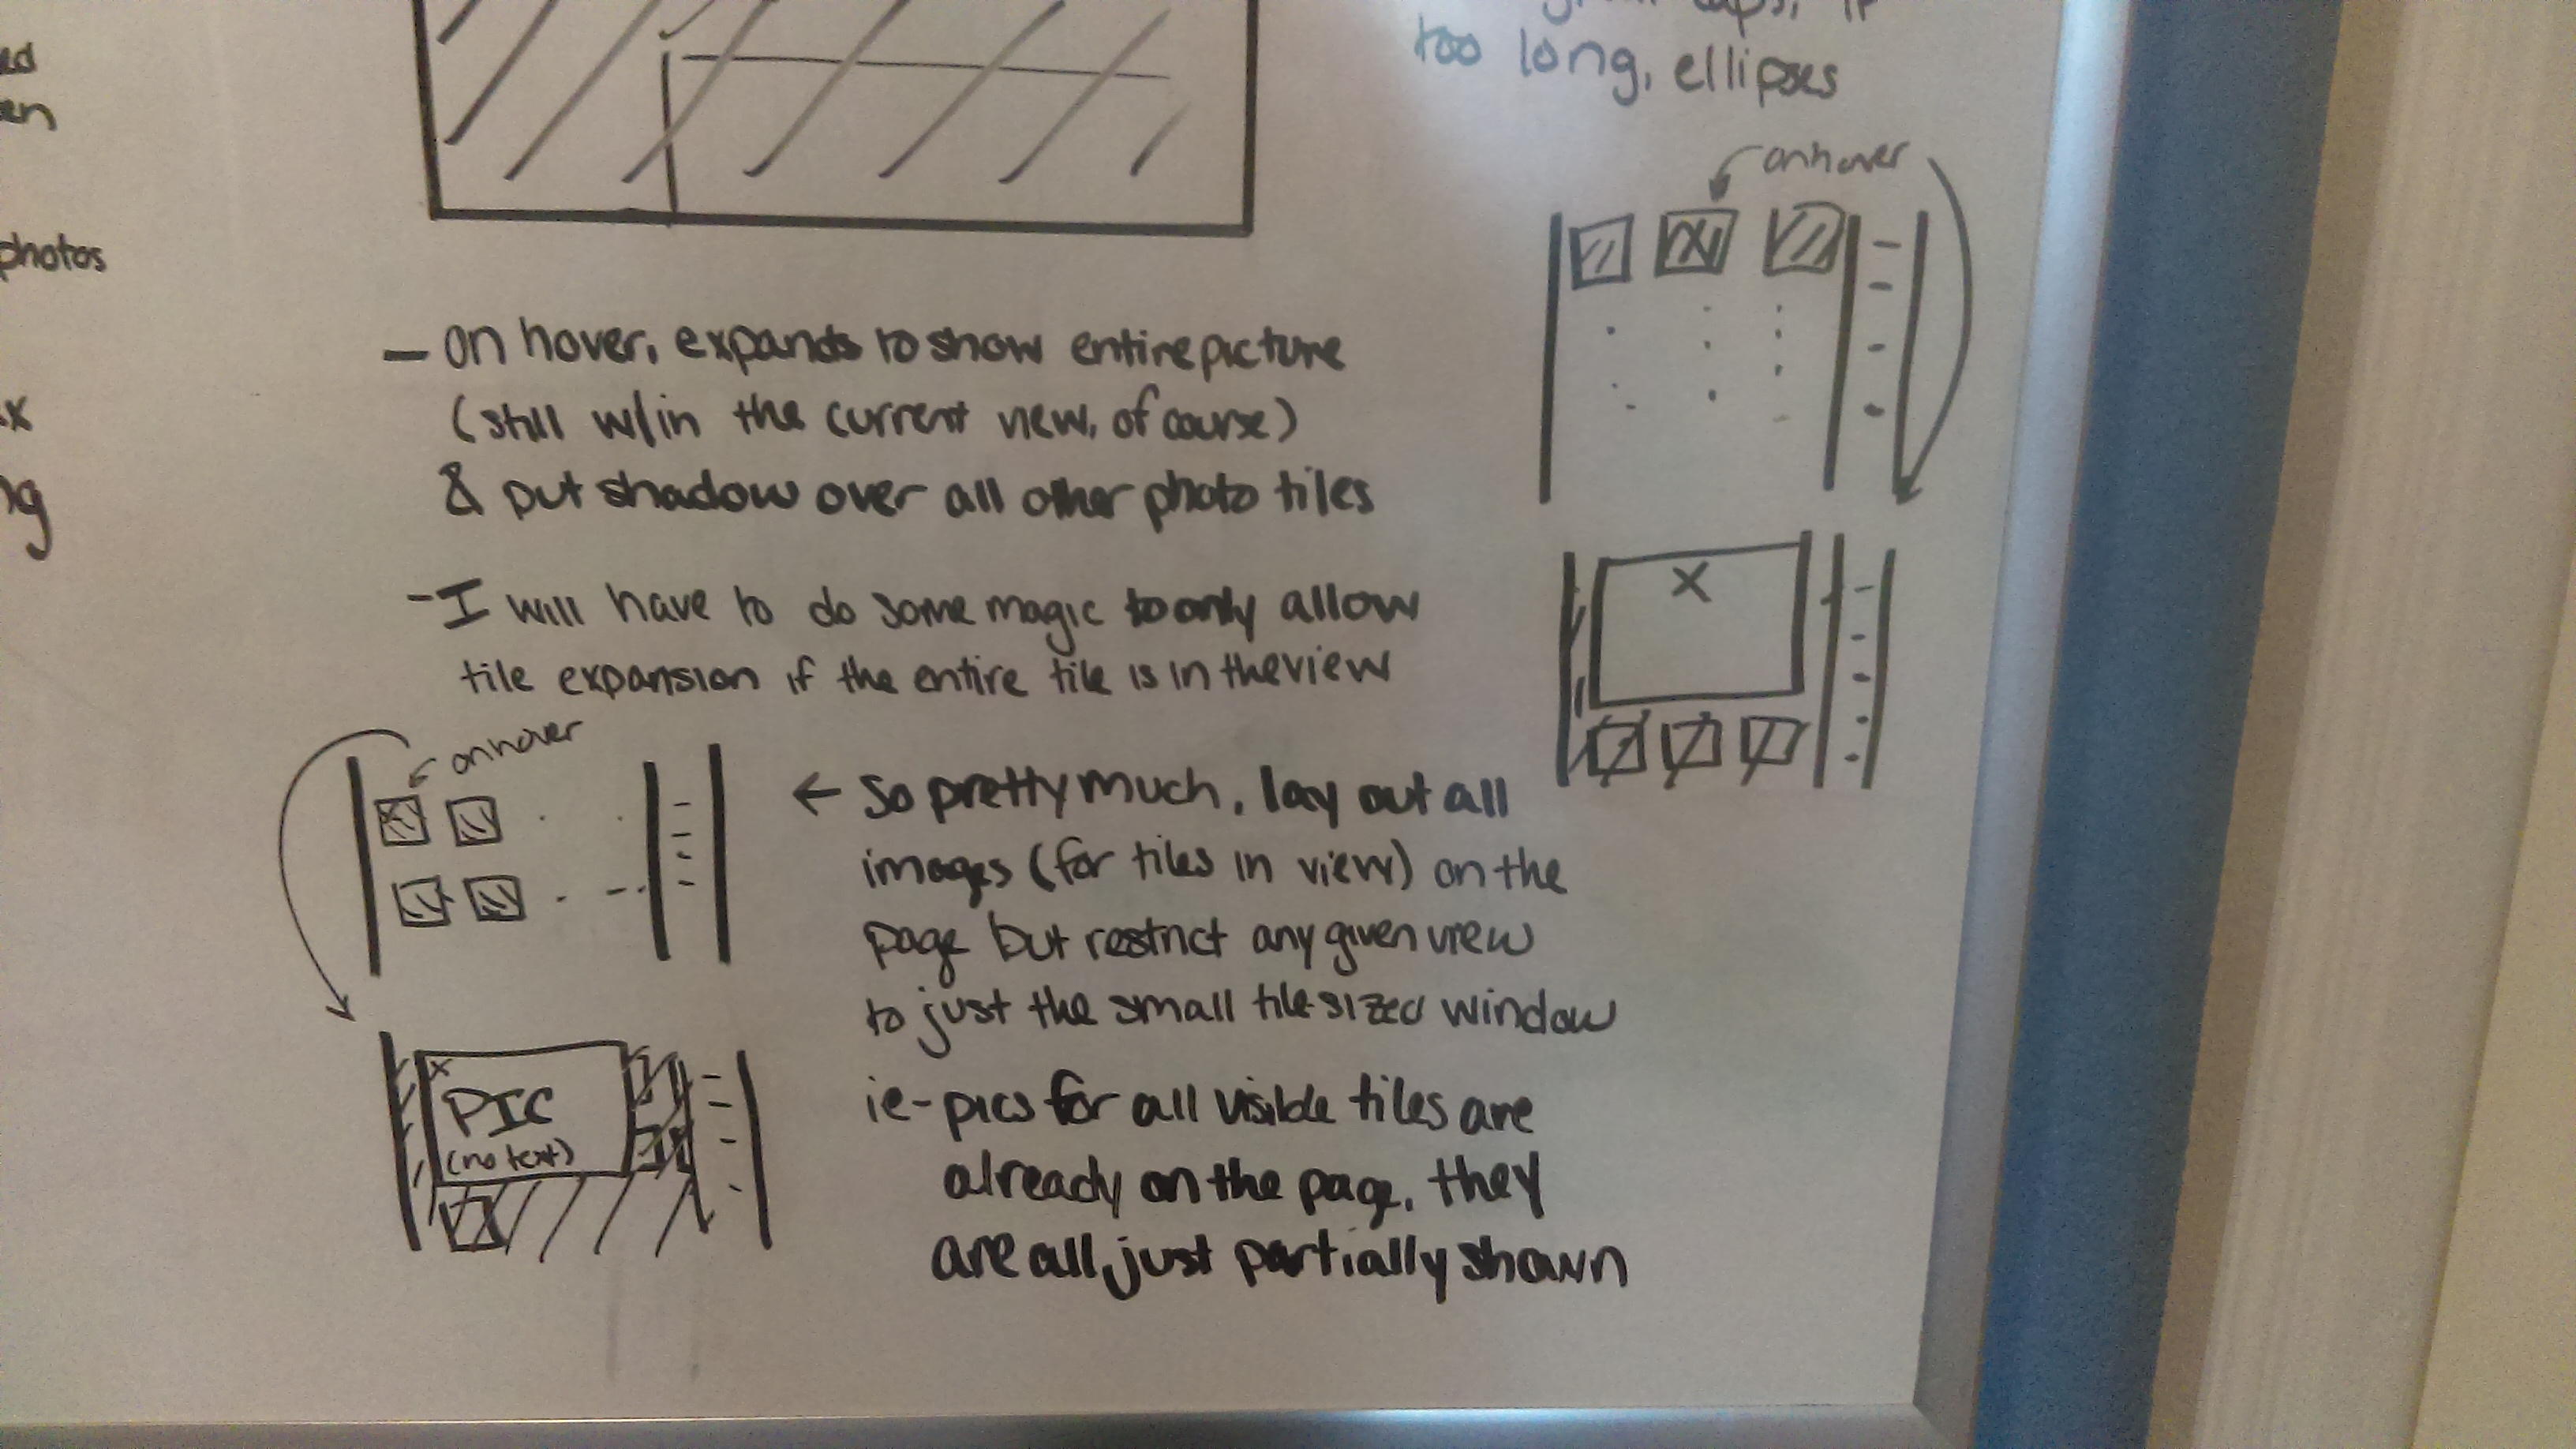 too long, ellipses
photos
onhover
- on hover, expands to show entire picture
(still w/in the current view, of course)
& put shadow over all other photo tiles
- I will have to do some magic to only allow
tile expansion if the entire tile is in the view
X
onhover
← so pretty much, lay out all
images (for tiles in view) on the
page but restrict any given view
to just the small tile-sized window
ie- pics for all visible tiles are
already on the page, they
are all just partially shown
x
PIC
(no text)